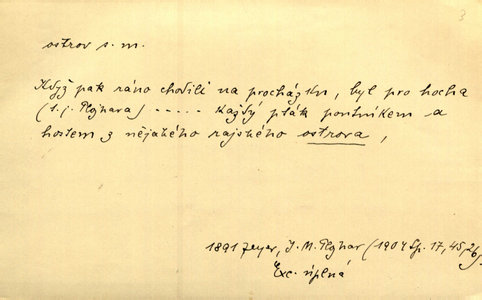 3
ostrov s. m.
Když pak ráno chodili na procházku, byl pro hocha
(t. j. Plojhara) ..... každý pták poutníkem a
hostem z nějakého rajského ostrova,
1891 Zeyer, J. M. Plojhar (1904 Sp. 17, 45, 26)
Exc. úplná